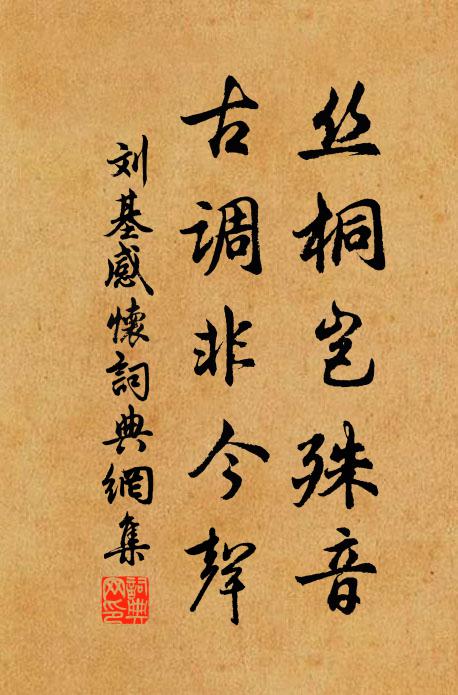 丝桐岂殊音
古调非今聲
刘基感懷詞典網集
詞典网印